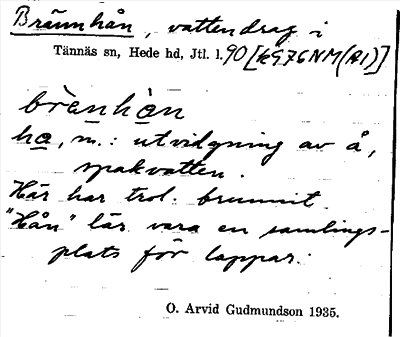 Brännhån, vattendrag i
Tännäs sn, Hede hd, Jtl. l. 90 [kG76NM(A1)]
brènhàn
ha, m.: utvidgning av å,
spakvatten.
Här har trol. brunnit.
"Hån" lär vara en samlings-
plats för lappar.
O. Arvid Gudmundson 1935.